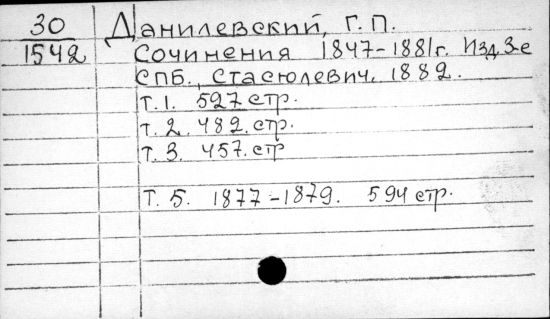 30 Данилевский, Г. П.
1542 Сочинения 1847-1881г. Изд. 3-е
СПБ., Стасюлевич, 1882.
Т. 1. 527 стр.
Т. 2. 482. стр.
Т. 3. 457. стр
Т. 5. 1877-1879. 594 стр.